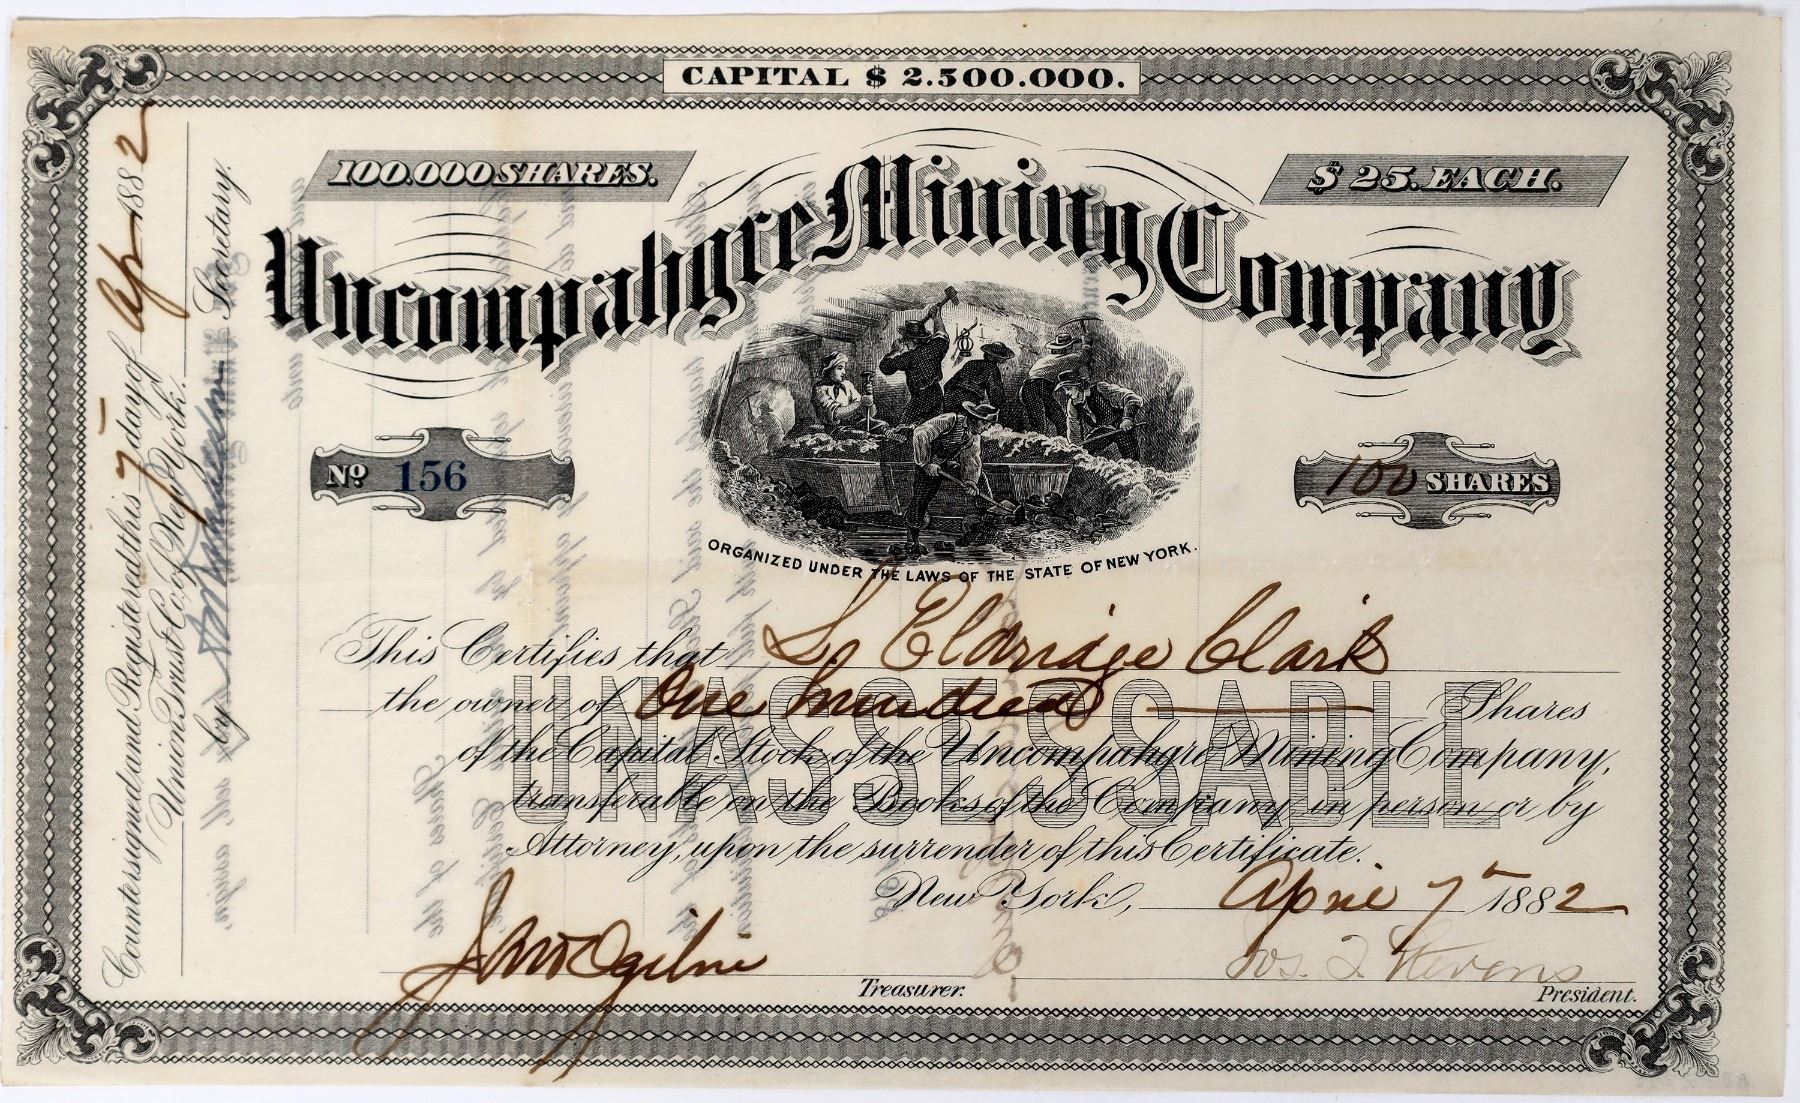 CAPITAL $ 2.500.000.
100.000 SHARES.
$ 25. EACH.
Uncompahgre Mining Company
No 156
100 SHARES
ORGANIZED UNDER THE LAWS OF THE STATE OF NEW YORK.
This Certifies that L. Eldridge Clark
the owner of One hundred Shares
UNASSESSABLE
of the Capital Stock of the Uncompahgre Mining Company,
transferable on the Books of the Company in person or by
Attorney, upon the surrender of this Certificate.
New York, April 7th 1882
Ogilvie
Treasurer.
Jos. Stevens
President.
Countersigned and Registered this 7 day of Apr 1882
Union Trust Co. of New York.
by Secretary.